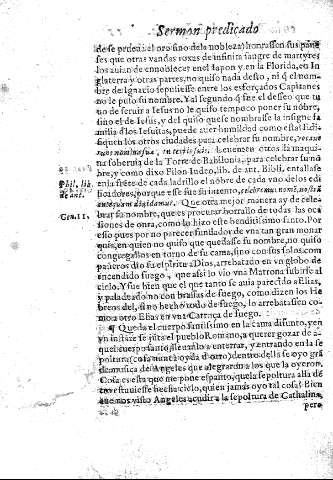 Sermon predicado
de se perdia el oro fino de la nobleza) honrassen sus pañ-
ses que otras vandas roxas de infinita sangre de martyres
los auian de ennoblecer en el Iapon y en la Florida, en In
glaterra y otras partes, no quiso nada desto, ni q̃ el nom-
bre de Ignacio sepultesse entre los esforçados Capitanes
no le puso su nombre. Y al segundo q̃ fue el desseo que tu
uo de seruir a Iesus no le quiso tampoco poner su nõbre,
sino el de Iesus, y del quiso que se nombrasse la insigne fa
milia d los Iesuitas, puede auer humildad como esta? Edi-
fiquen los otros ciudades para celebrar su nombre,
nomina sua, in terris suis. Leuenten otros la maqui-
na soberuia de la Torre de Babilonia, para celebrar su nõ-
bre, y como dixo Filon Iudeo, lib. de ant. Bibli. entallasse
en la frẽte de cada ladrillo el nõbre de cada vno de los edi
ficadores, porque esse fue su intento, celebremus nomẽ nostrũ
antequam diuidamur. Que otra mejor manera ay de cele-
brar su nombre, que es procurar borrallo de todas las oca
siones de onra, como lo hizo este benditissimo santo. Por
esso pues por no parecer fundador de vna tan gran monar
quia, en quien no quiso que quedasse su nombre, no quiso
congregallos en torno de su cama, sino con sus solos com
pañeros dio su espiritu a Dios, arrebatado en vn globo de
encendido fuego, que assi lo vio vna Matrona subirse al
cielo. Y fue bien que el que tanto se auia parecido a Elias,
y paladeado no con brasas de fuego, como dizen los He
breos del, sino hecho todo de fuego, lo arrebatassen co
mo a otro Elias en vna Carroça de fuego.
¶ Queda el cuerpo santissimo en la cama difunto, y en
vn instãte se jũta el pueblo Romano, a querer gozar de a-
quel cuerpo santo, lleuanlo a enterrar, y entrando en la se
poltura (cosa nunca oyda d otro) dentro della se oyo grã
de musica de Angeles que alegraron a los que la oyeron.
Cosa es esta que me pone espanto, que la sepoltura alla dẽ
tro estuuiesse hecha cielo, quien jamas oyo tal cosa? Bien
que emos visto Angeles acudir a la sepoltura de Cathalina,
pero
Phil. lib.
de ant.
Gen. 11.